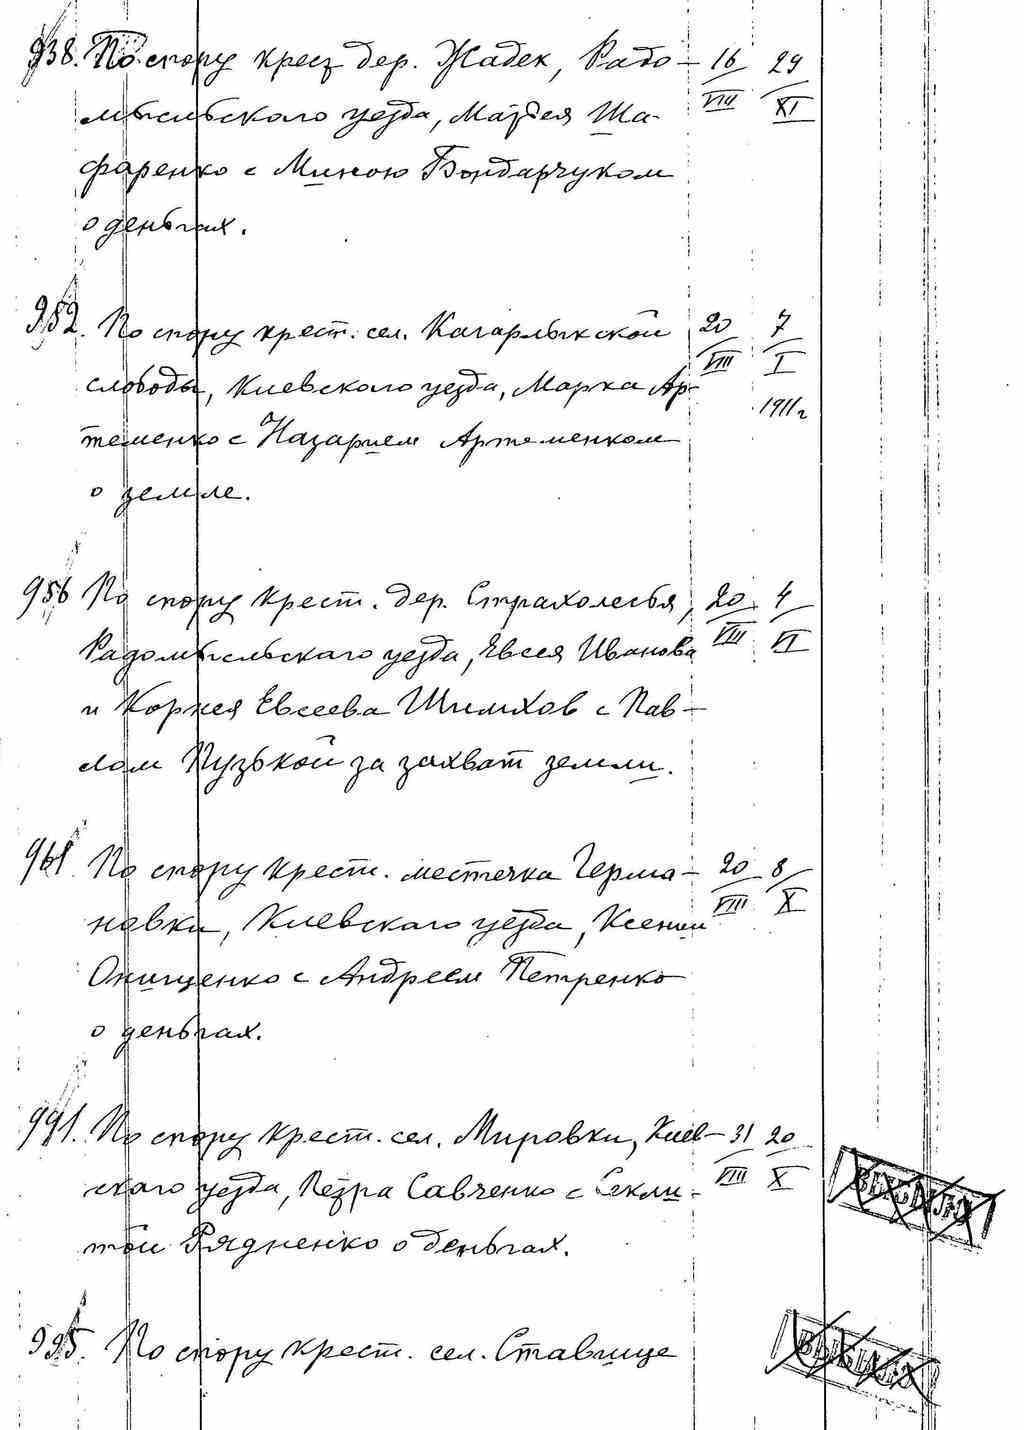 938. По спору крест. дер. Жадек, Радо- 16/VIII 29/XI
мысльского уезда, Матвея Ша-
фаренко с Миною Бондарчуком
о деньгах.
952. По спору крест. сел. Кагарлыкской 20/VIII 7/I
слободы, Киевского уезда, Марка Ар- 1911 г
теменко с Назарием Артеменком
о земле.
956 По спору крест. дер. Страхолесья, 20/VIII 4/VI
Радомысльскаго уезда, Евсея Иванова
и Корнея Евсеева с Пав-
лом Пузькой за захват земли.
961. По спору крест. местечка Герма- 20/VIII 8/X
новки, Киевскаго уезда, Ксении
Онищенко с Андреем Петренко
о деньгах.
991. По спору крест. сел. Мировки, Киев- 31/VIII 20/X
скаго уезда, Петра Савченко с Секли-
той Рядненко о деньгах.
ВЫБЫЛО
995. По спору крест. сел. Ставище
ВЫБЫЛО